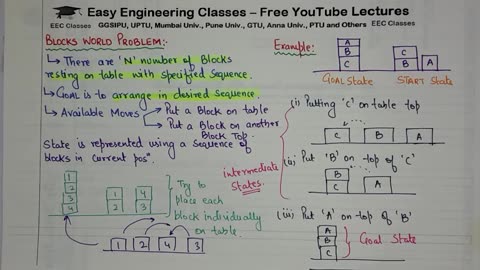 Easy Engineering Classes – Free YouTube Lectures
EEC Classes
GGSIPU, UPTU, Mumbai Univ., Pune Univ., GTU, Anna Univ., PTU and Others
EEC Classes
BLOCKS WORLD PROBLEM:-
↳ There are 'N' number of Blocks
resting on table with specified sequence.
↳ GOAL is to arrange in desired sequence.
↳ Available Moves
Put a Block on table
Put a Block on another
Block Top.
State is represented using a sequence of
blocks in current posⁿ.
1
2
3
4
1
2
4
3
Try to
place each
block individually
on table.
1
2
4
3
Example:
A
B
C
GOAL State
C
B
A
START STATE
intermediate
States.
(i) Putting 'C' on table top
C
B
A
(ii) Put 'B' on top of 'C'
B
C
A
(iii) Put 'A' on top of 'B'
A
B
C
Goal State